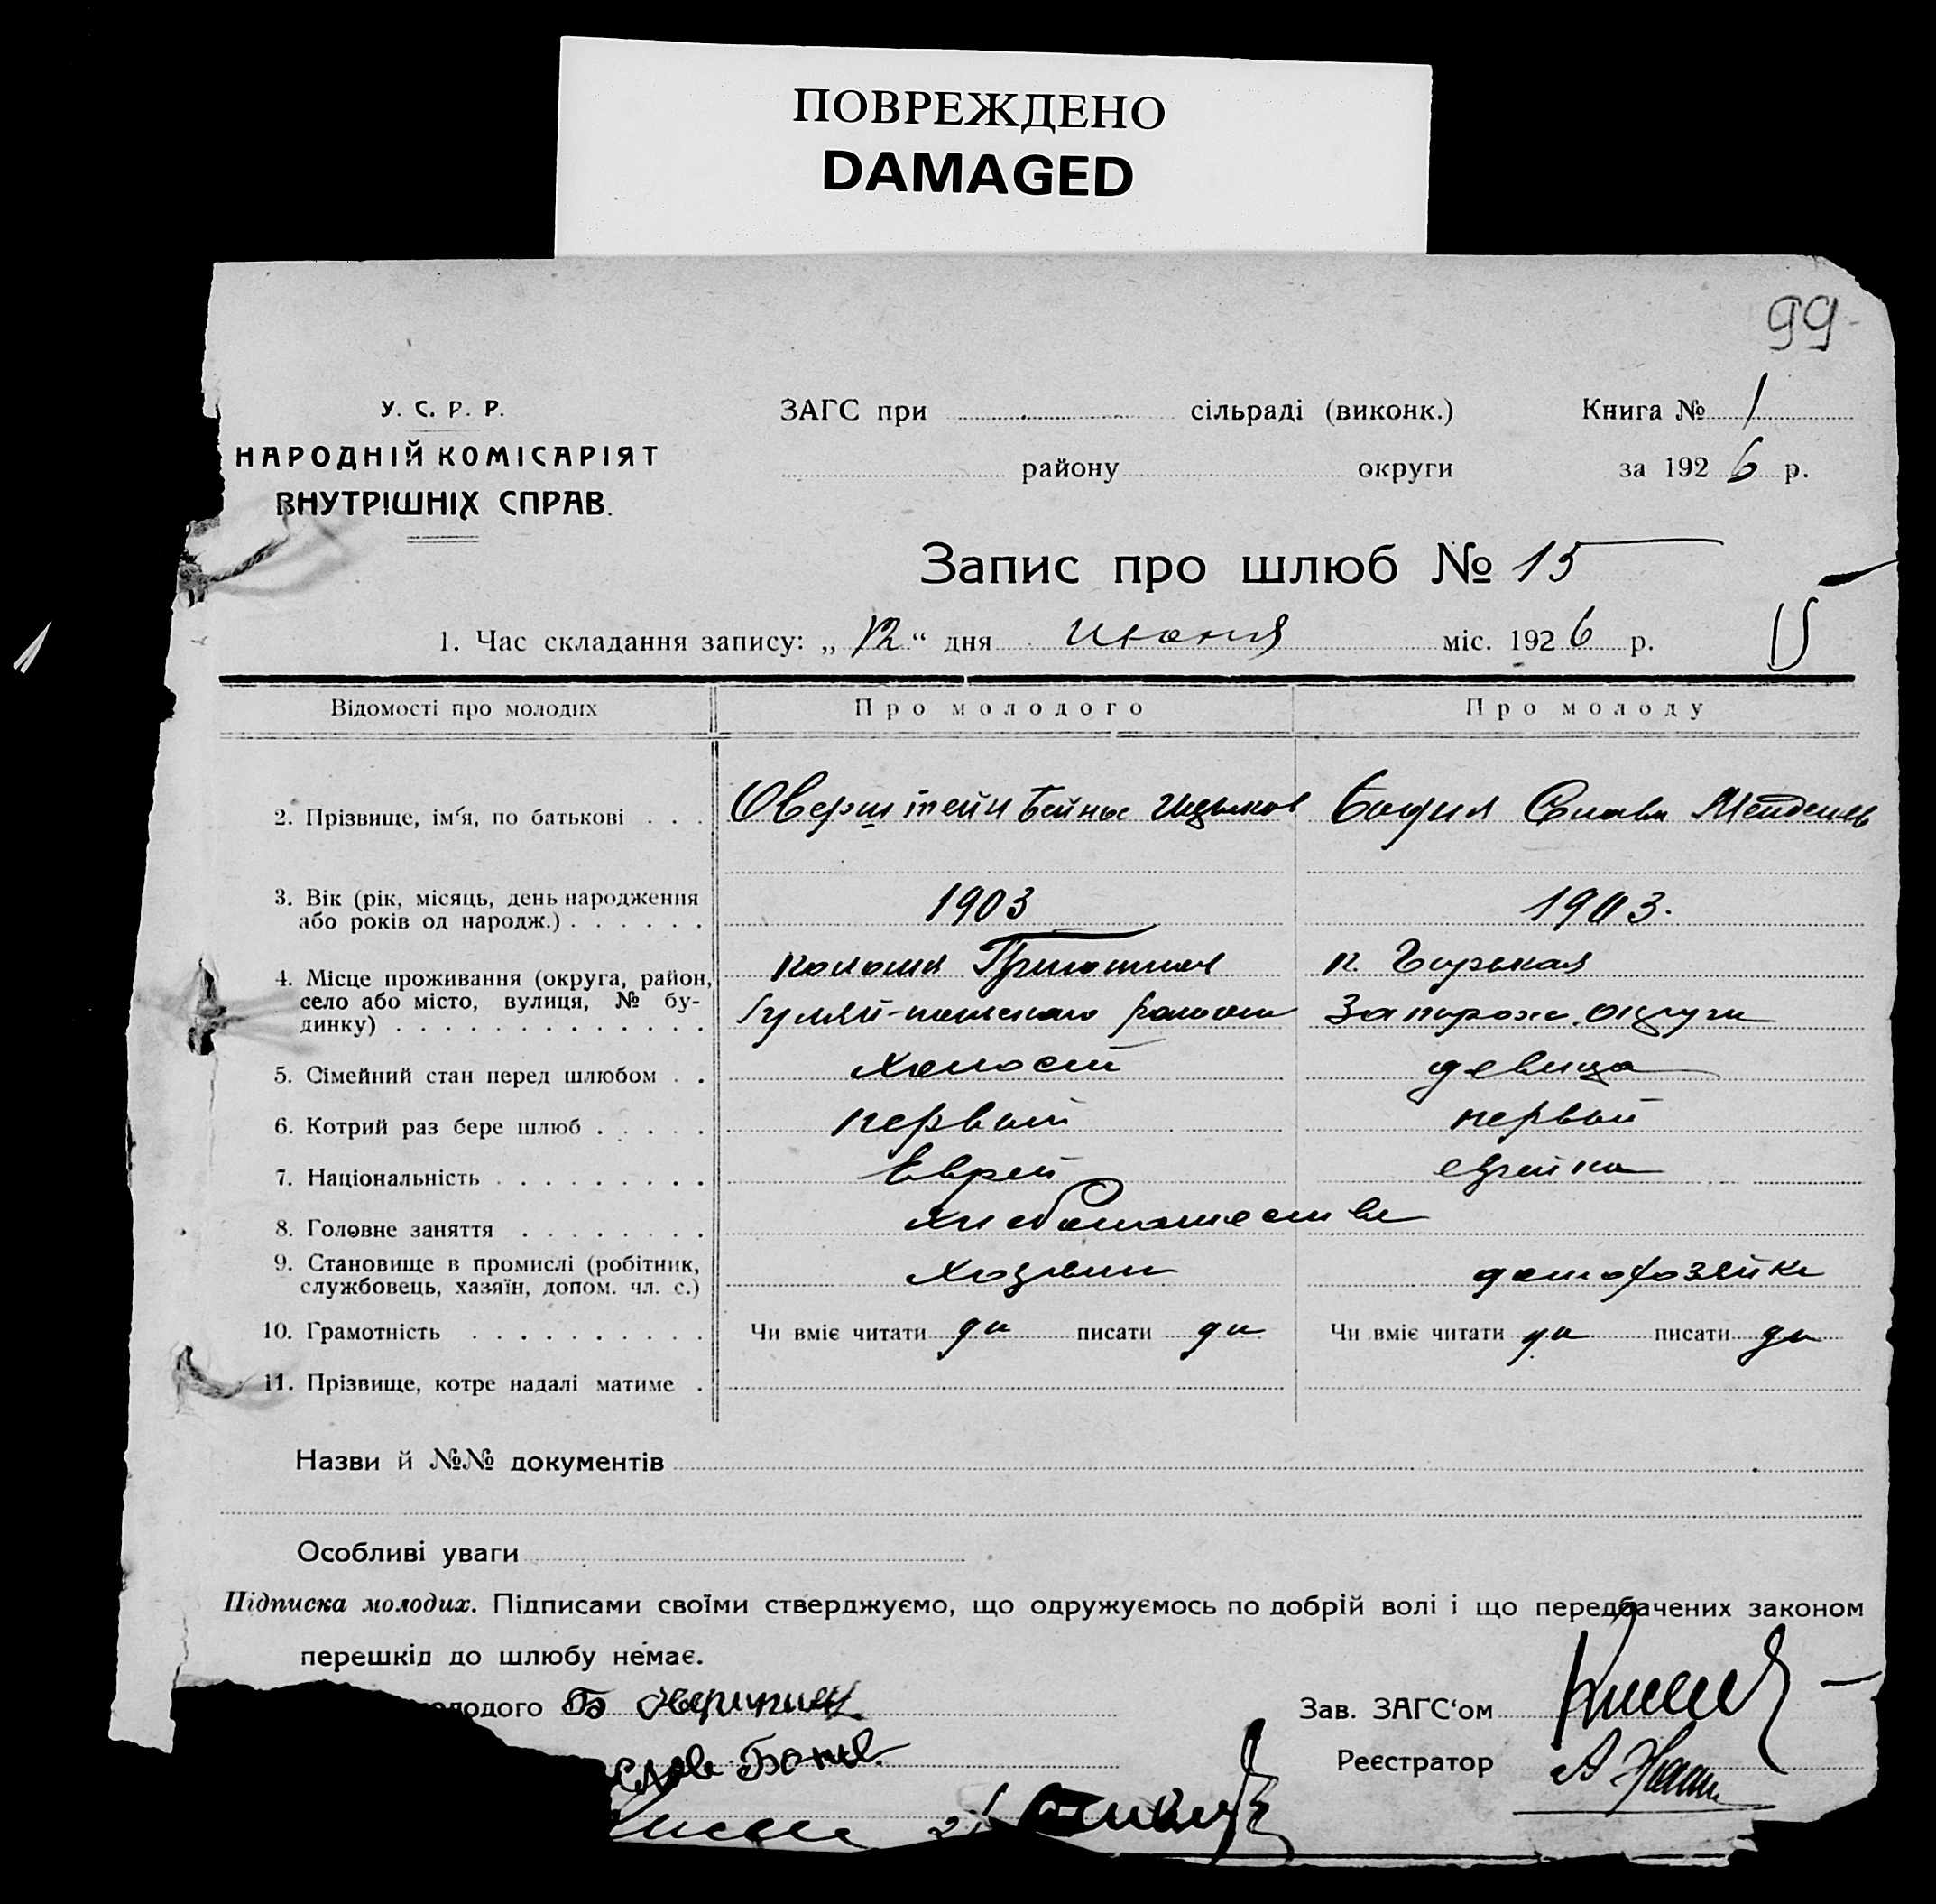 ПОВРЕЖДЕНО
DAMAGED
99
У. С. Р. Р.
НАРОДНІЙ КОМІСАРІЯТ
ВНУТРІШНІХ СПРАВ.
ЗАГС при сільраді (виконк.)
району округи
Книга № 1
за 1926 р.
Запис про шлюб № 15
1. Час складання запису: „12“ дня июня міс. 1926 р.
Відомості про молодих Про молодого Про молоду
2. Прізвище, ім‘я, по батькові . . . Оверштейн Бейнус Ицьков
3. Вік (рік, місяць, день народження
або років од народж.) . . . . . . 1903 1903.
4. Місце проживання (округа, район,
село або місто, вулиця, № бу-
динку) . . . . . . . . . . . . .
колония
к. Горькая
Гуляй-польского района Запорож. округи
5. Сімейний стан перед шлюбом . . холост девица
6. Котрий раз бере шлюб . . . . . первый первый
7. Національність . . . . . . . . . Еврей еврейка
8. Головне заняття . . . . . . . . хлебопашество
9. Становище в промислі (робітник,
службовець, хазяїн, допом. чл. с.) хозяин домохозяйка
10. Грамотність . . . . . . . . . . Чи вміє читати да писати да Чи вміє читати да писати да
11. Прізвище, котре надалі матиме .
Назви й №№ документів
Особливі уваги
Підписка молодих. Підписами своїми стверджуємо, що одружуємось по добрій волі і що передбачених законом
перешкід до шлюбу немає.
олодого Б
Зав. ЗАГС‘ом
Реєстратор